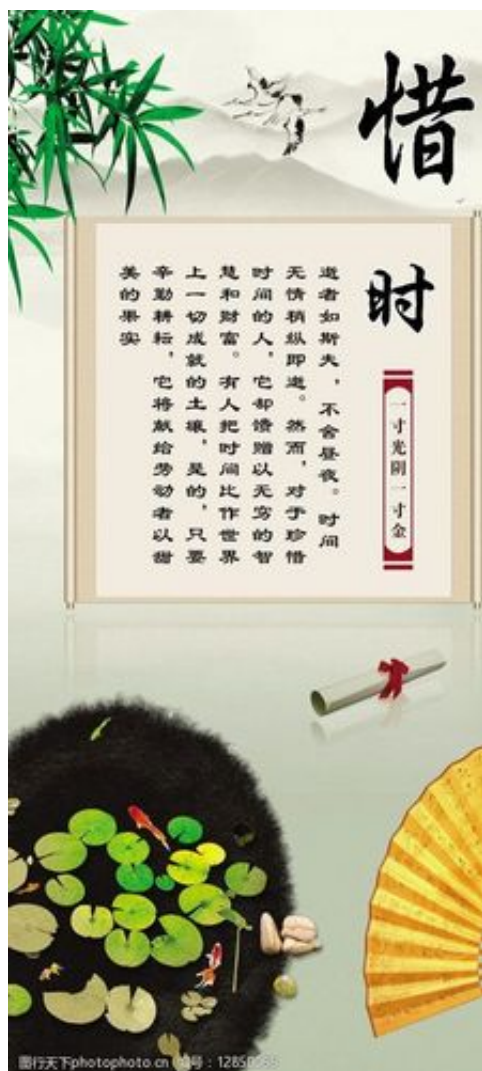 惜
时
一寸光阴一寸金
逝者如斯夫，不舍昼夜。时间
无情稍纵即逝。然而，对于珍惜
时间的人，它却馈赠以无穷的智
慧和财富。有人把时间比作世界
上一切成就的土壤，是的，只要
辛勤耕耘，它将献给劳动者以甜
美的果实
图行天下photophoto.cn